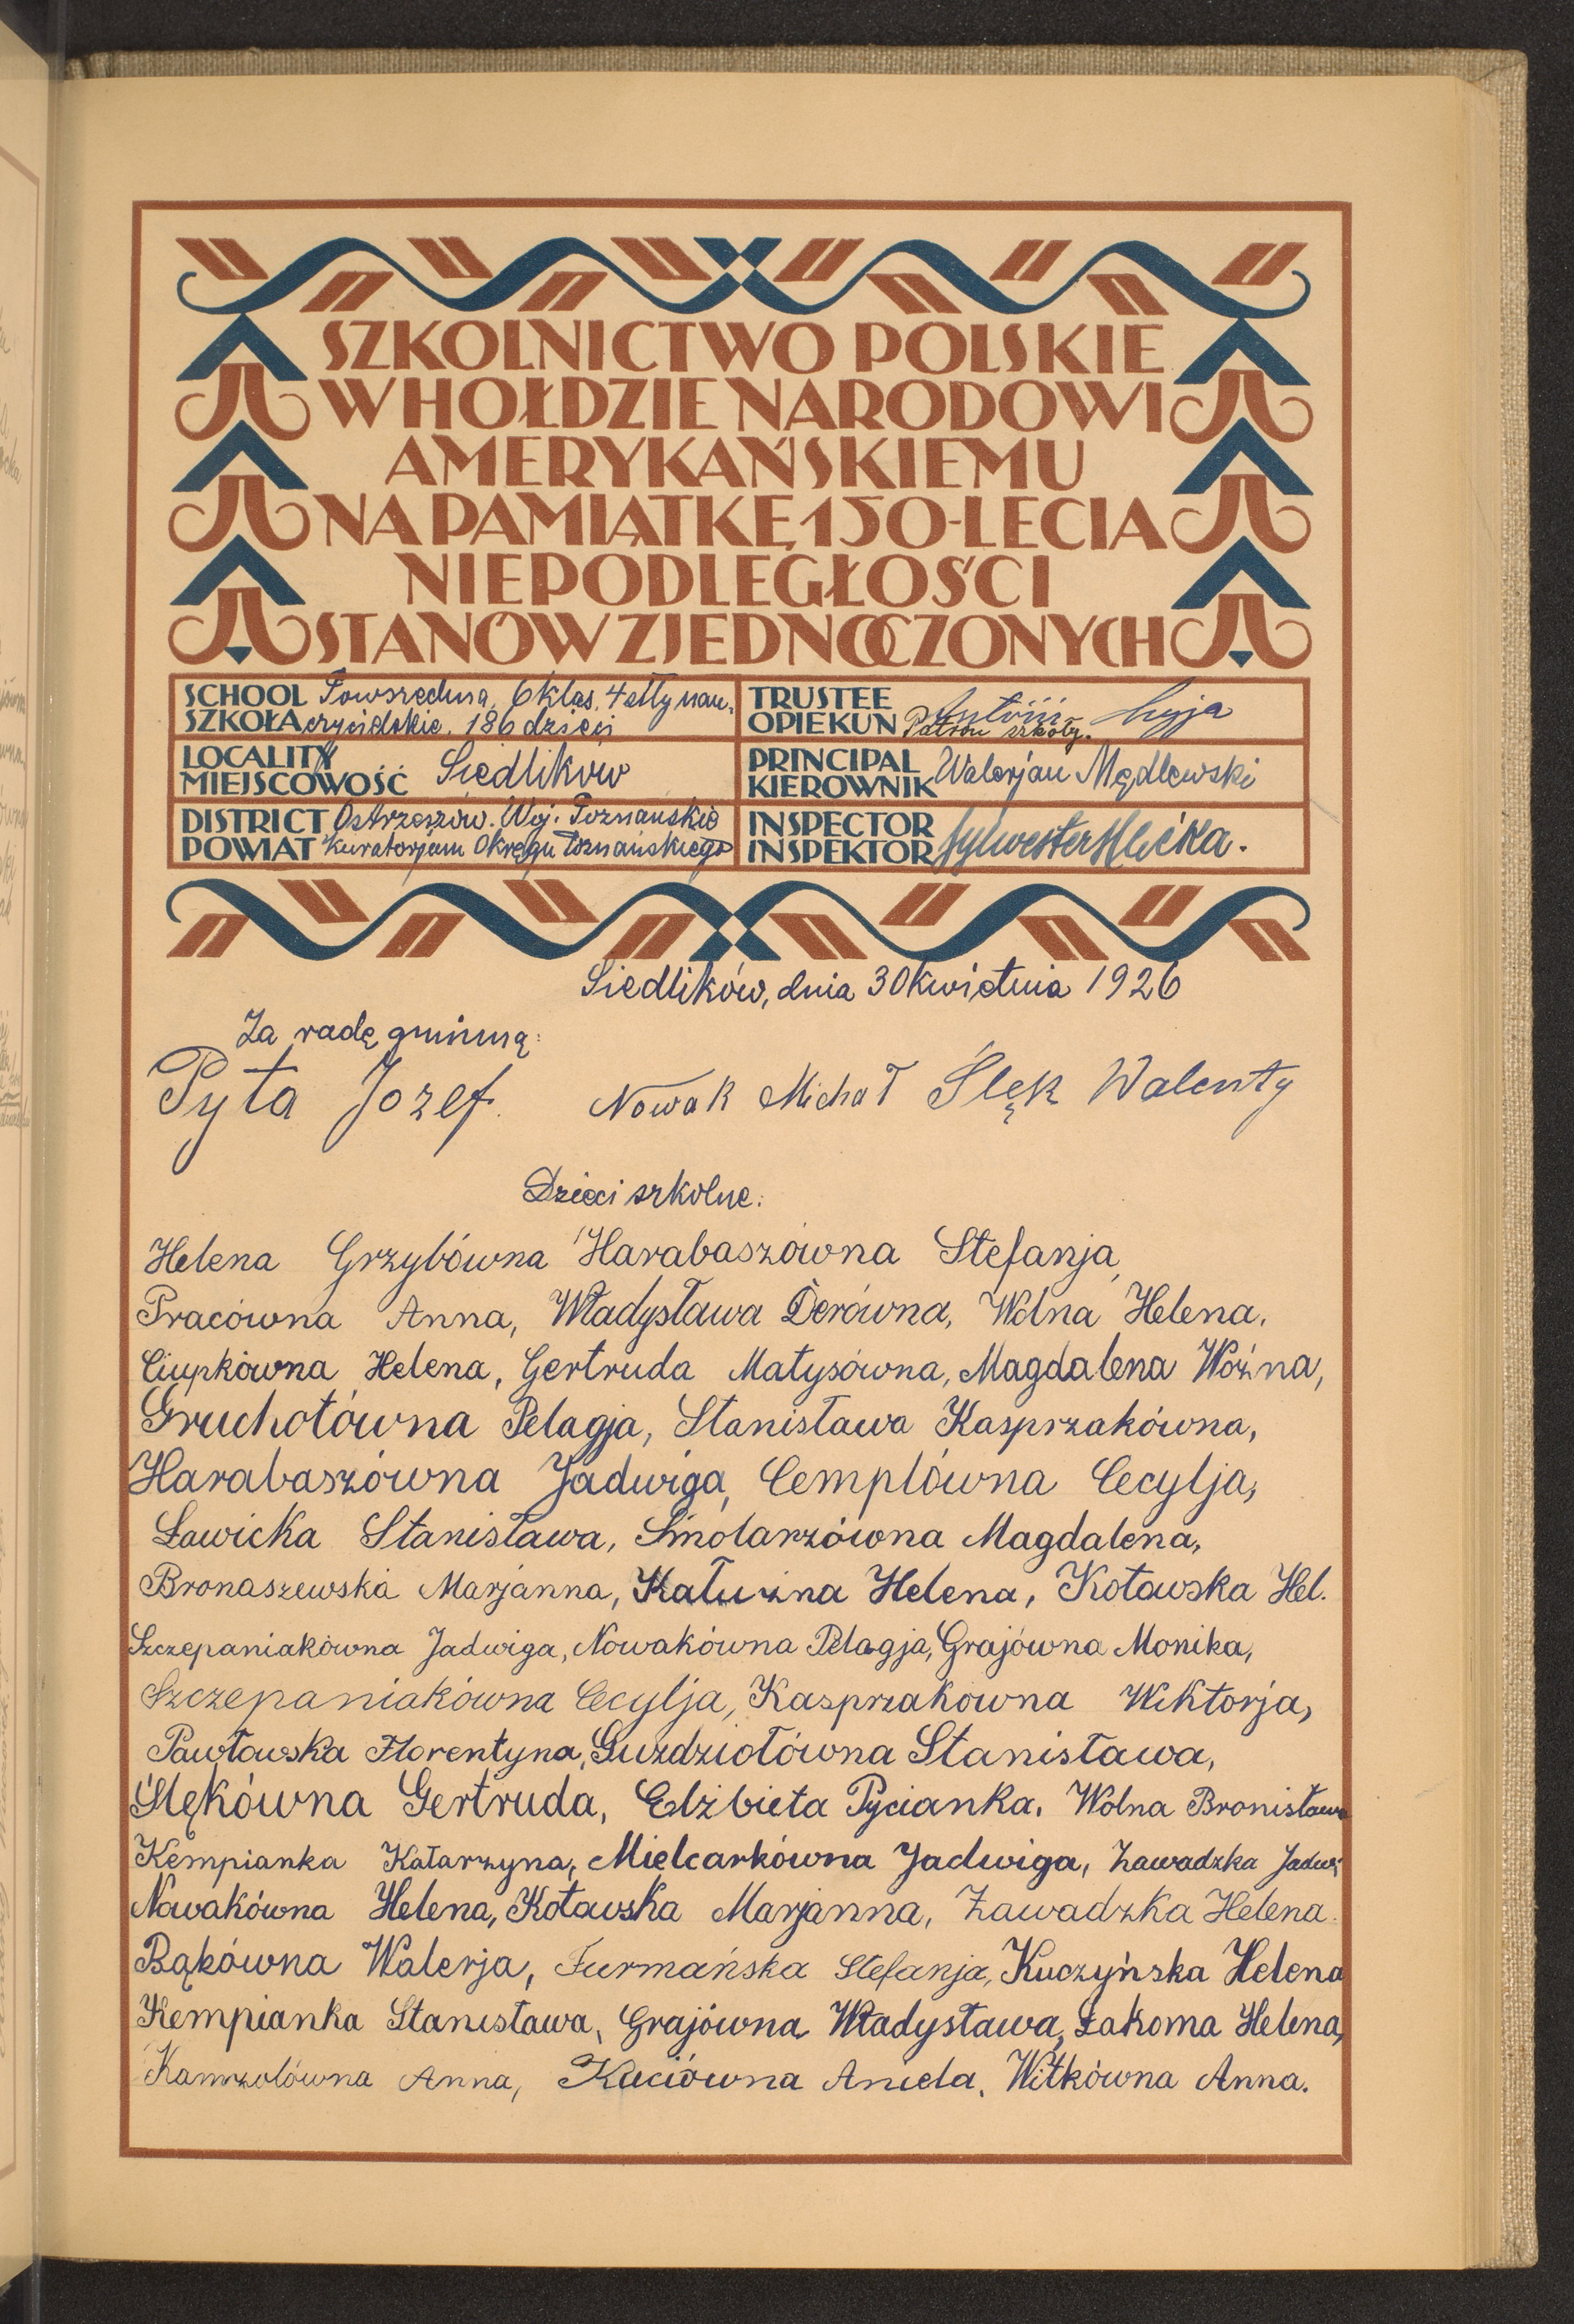 SZKOLNICTWO POLSKIE
W HOŁDZIE NARODOWI
AMERYKAŃSKIEMU
NA PAMIĄTKĘ 150-LECIA
NIEPODLEGŁOŚCI
STANÓW ZJEDNOCZONYCH
SCHOOL Powszechna, 6 klas, 4 etaty nau-
SZKOŁA czycielskie, 186 dzieci
TRUSTEE
OPIEKUN Patron szkoły.
LOCALITY
MIEJSCOWOŚĆ Siedlików
PRINCIPAL
KIEROWNIK Walerjan Mędlewski
DISTRICT Ostrzeszów. Woj. Poznańskie
POWIAT Kuratorjum Okręgu Poznańskiego
INSPECTOR
INSPEKTOR Sylwester
Siedlików, dnia 30 kwietnia 1926
Za radę gminną:
Pyta Jozef. Nowak Michał Ślęk Walenty
Dzieci szkolne:
Helena Grzybówna Harabaszówna Stefanja,
Pracówna Anna, Władysława Derówna, Wolna Helena,
Ciupkówna Helena, Gertruda Matysówna, Magdalena Woźna,
Gruchotówna Pelagja, Stanisława Kasprzakówna,
Harabaszówna Jadwiga, Cemplówna Cecylja,
Ławicka Stanisława, Smolarzówna Magdalena,
Bronaszewska Marjanna, Kałużna Helena, Kotowska Hel.
Szczepaniakówna Jadwiga, Nowakówna Pelagja, Grajówna Monika,
Szczepaniakówna Cecylja, Kasprzakówna Wiktorja,
Pawłowska Florentyna, Guździołówna Stanisława,
Ślękówna Gertruda, Elżbieta Pycianka, Wolna Bronisława
Kempianka Katarzyna, Mielcarkówna Jadwiga, Zawadzka Jadwi
Nowakówna Helena, Kotowska Marjanna, Zawadzka Helena.
Bąkówna Walerja, Furmańska Stefanja, Kuczyńska Helena
Kempianka Stanisława, Grajówna Władysława, Łakoma Helena,
Kamzolówna Anna, Kuciówna Aniela, Witkówna Anna.